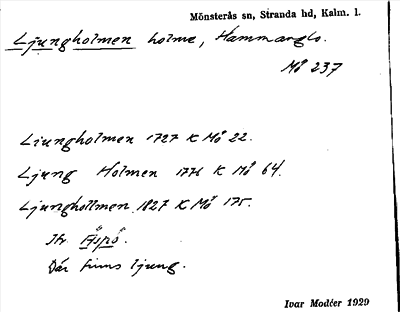 Mönsterås sn, Stranda hd, Kalm. l.
Ljungholmen holme, Hammarglo.
Mö 237
Liungholmen 1727 K Mö 22.
Ljung Holmen 1776 K Mö 64.
Ljungholmen 1827 K Mö 175.
Jfr Äspö.
Där finns ljung.
Ivar Modéer 1929